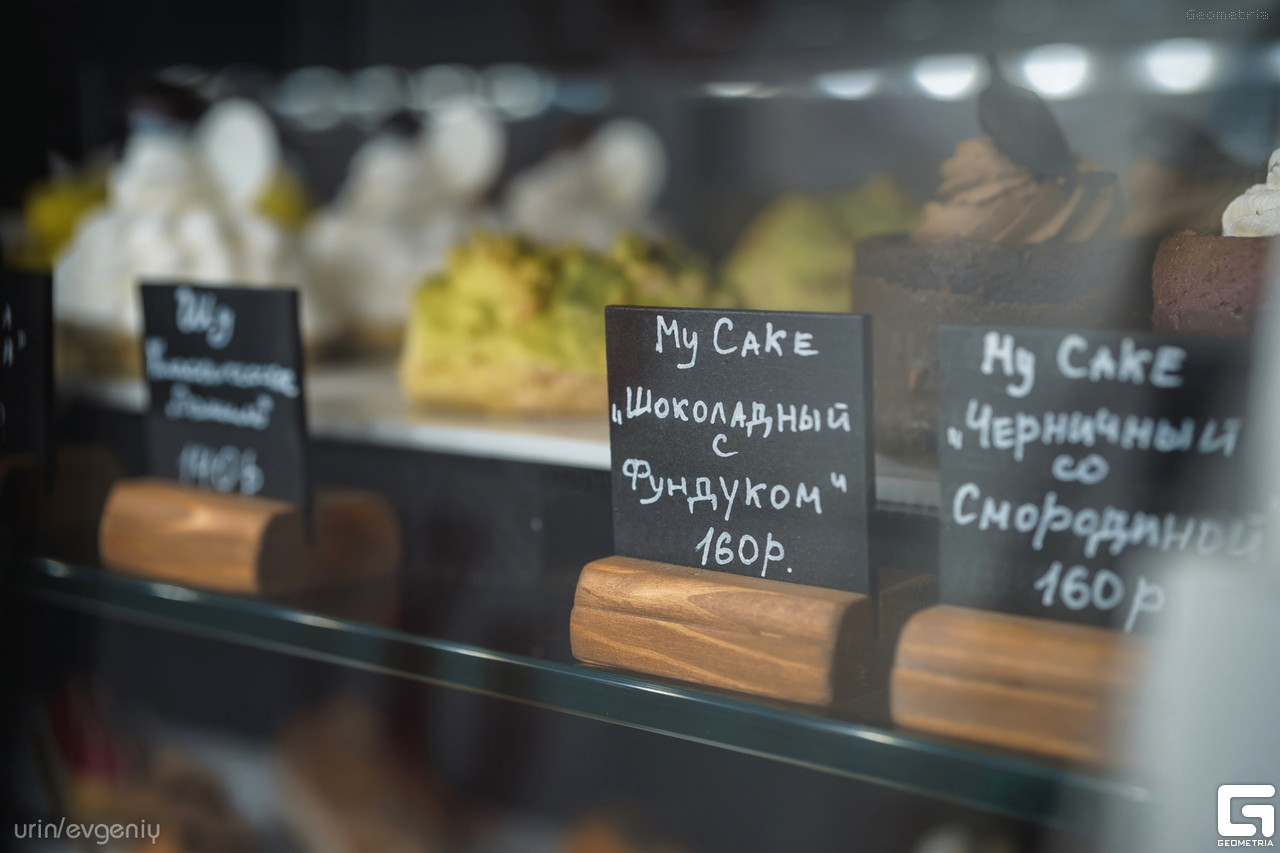 Geometria
Шу
My CAKE
„Шоколадный
с
Фундуком"
160р.
My CAKE
„Черничный
со
Смородиной
160р
urin/evgeniy
GEOMETRIA